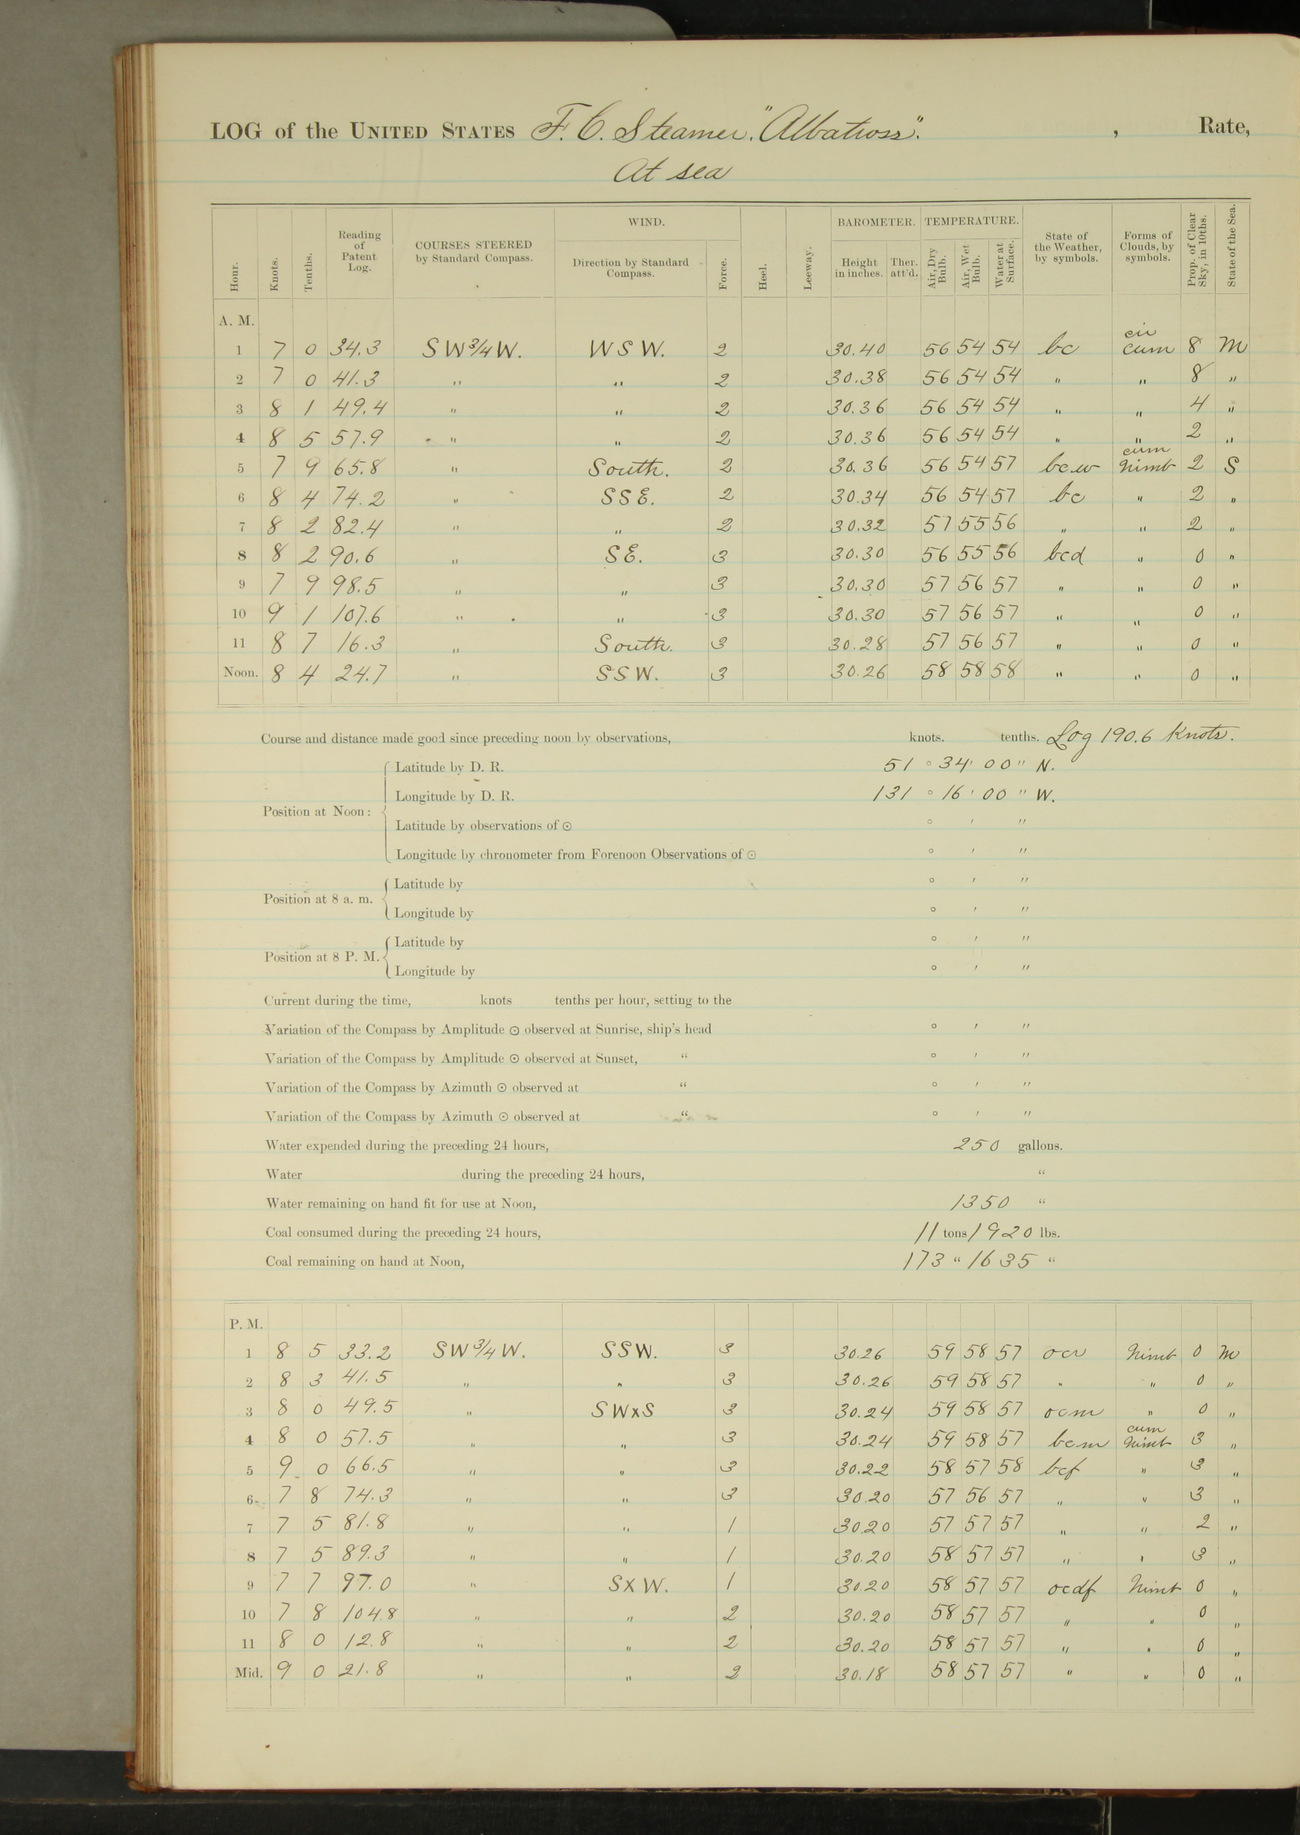 LOG of the UNITED STATES F. C. Steamer. "Albatross". , Rate,
At sea
Hour. Knots. Tenths. Reading of Patent Log. COURSES STEERED by Standard Compass. WIND. Direction by Standard Compass. Force. Heel. Leeway. BAROMETER. Height in inches. Ther. att'd. TEMPERATURE. Air, Dry Bulb. Air, Wet Bulb. Water at Surface. State of the Weather, by symbols. Forms of Clouds, by symbols. Prop. of Clear Sky, in 10ths. State of the Sea.
A. M.
1 7 0 34.3 SW3/4W. WSW. 2 30.40 56 54 54 bc cir cum 8 M
2 7 0 41.3 " " 2 30.38 56 54 54 " " 8 "
3 8 1 49.4 " " 2 30.36 56 54 54 " " 4 "
4 8 5 57.9 " " 2 30.36 56 54 54 " " 2 "
5 7 9 65.8 " South. 2 30.36 56 54 57 bcw cum Nimb 2 S
6 8 4 74.2 " SSE. 2 30.34 56 54 57 bc " 2 "
7 8 2 82.4 " " 2 30.32 57 55 56 " " 2 "
8 8 2 90.6 " SE. 3 30.30 56 55 56 bcd " 0 "
9 7 9 98.5 " " 3 30.30 57 56 57 " " 0 "
10 9 1 107.6 " " 3 30.30 57 56 57 " " 0 "
11 8 7 16.3 " South. 3 30.28 57 56 57 " " 0 "
Noon. 8 4 24.7 " SSW. 3 30.26 58 58 58 " " 0 "
Course and distance made good since preceding noon by observations, knots. tenths. Log 190.6 Knots.
Position at Noon: Latitude by D. R. 51 ° 34 ' 00 " N.
Longitude by D. R. 131 ° 16 ' 00 " W.
Latitude by observations of ☉ ° ' "
Longitude by chronometer from Forenoon Observations of ☉ ° ' "
Position at 8 a. m. Latitude by ° ' "
Longitude by ° ' "
Position at 8 P. M. Latitude by ° ' "
Longitude by ° ' "
Current during the time, knots tenths per hour, setting to the
Variation of the Compass by Amplitude ☉ observed at Sunrise, ship's head ° ' "
Variation of the Compass by Amplitude ☉ observed at Sunset, " ° ' "
Variation of the Compass by Azimuth ☉ observed at " ° ' "
Variation of the Compass by Azimuth ☉ observed at " ° ' "
Water expended during the preceding 24 hours, 250 gallons.
Water during the preceding 24 hours, "
Water remaining on hand fit for use at Noon, 1350 "
Coal consumed during the preceding 24 hours, 11 tons 1920 lbs.
Coal remaining on hand at Noon, 173 " 1635 "
P. M.
1 8 5 33.2 SW3/4W. SSW. 3 30.26 59 58 57 ocr Nimb 0 M
2 8 3 41.5 " " 3 30.26 59 58 57 " " 0 "
3 8 0 49.5 " SWxS 3 30.24 59 58 57 ocm " 0 "
4 8 0 57.5 " " 3 30.24 59 58 57 bcm cum Nimb 3 "
5 9 0 66.5 " " 3 30.22 58 57 58 bcf " 3 "
6 7 8 74.3 " " 3 30.20 57 56 57 " " 3 "
7 7 5 81.8 " " 1 30.20 57 57 57 " " 2 "
8 7 5 89.3 " " 1 30.20 58 57 57 " " 3 "
9 7 7 97.0 " SXW. 1 30.20 58 57 57 ocdf Nimb 0 "
10 7 8 104.8 " " 2 30.20 58 57 57 " " 0 "
11 8 0 12.8 " " 2 30.20 58 57 57 " " 0 "
Mid. 9 0 21.8 " " 2 30.18 58 57 57 " " 0 "